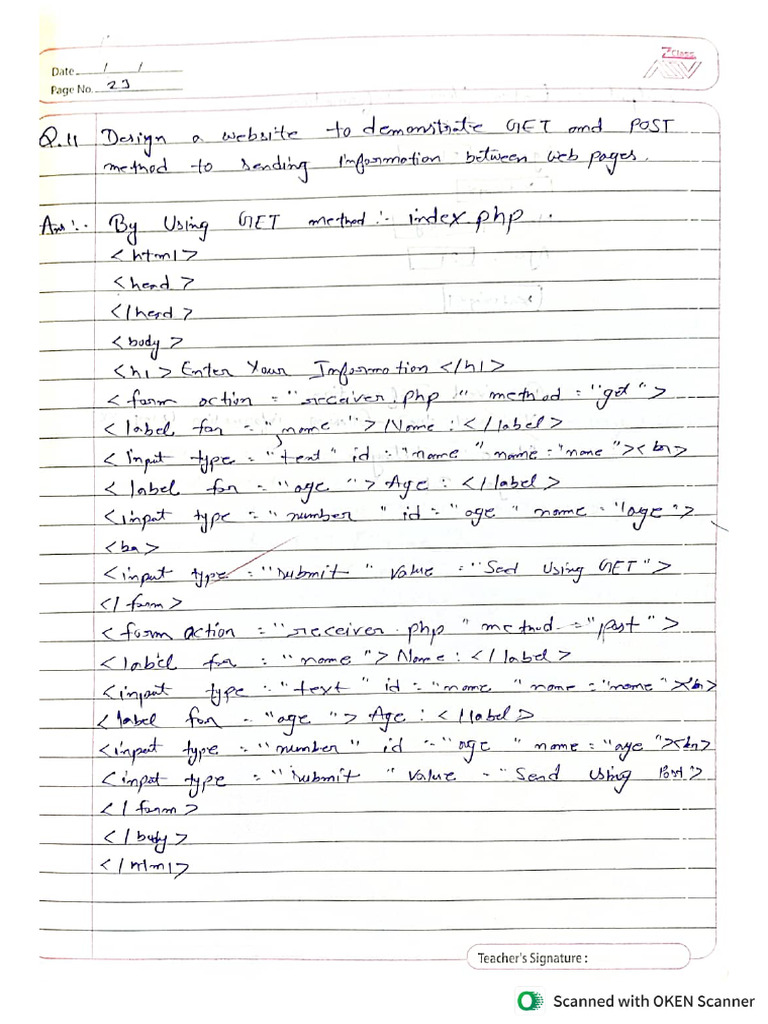 Z Class
Date / /
Page No. 29
Q.11 Design a website to demonstrate GET and POST
method to sending information between web pages.
Ans :- By Using GET method :- index.php .
<html>
<head>
</head>
<body>
<h1> Enter Your Information </h1>
<form action = "receiver.php" method = "get">
<label for = "name"> Name : </label>
<input type = "text" id = "name" name = "name"><br>
<label for = "age"> Age : </label>
<input type = "number" id = "age" name = "age">
<br>
<input type = "submit" value = "Sed Using GET">
</form>
<form action = "receiver.php" method = "post">
<label for = "name"> Name : </label>
<input type = "text" id = "name" name = "name"><br>
<label for = "age"> Age : </label>
<input type = "number" id = "age" name = "age"><br>
<input type = "submit" value = "Send Using Post>
</form>
</body>
</html>
Teacher's Signature :
Scanned with OKEN Scanner